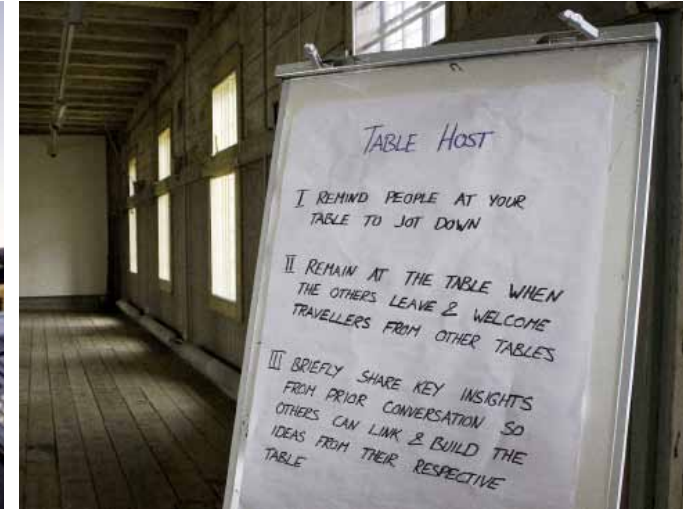 TABLE HOST
I REMIND PEOPLE AT YOUR
TABLE TO JOT DOWN
II REMAIN AT THE TABLE WHEN
THE OTHERS LEAVE & WELCOME
TRAVELLERS FROM OTHER TABLES
III BRIEFLY SHARE KEY INSIGHTS
FROM PRIOR CONVERSATION SO
OTHERS CAN LINK & BUILD THE
IDEAS FROM THEIR RESPECTIVE
TABLE